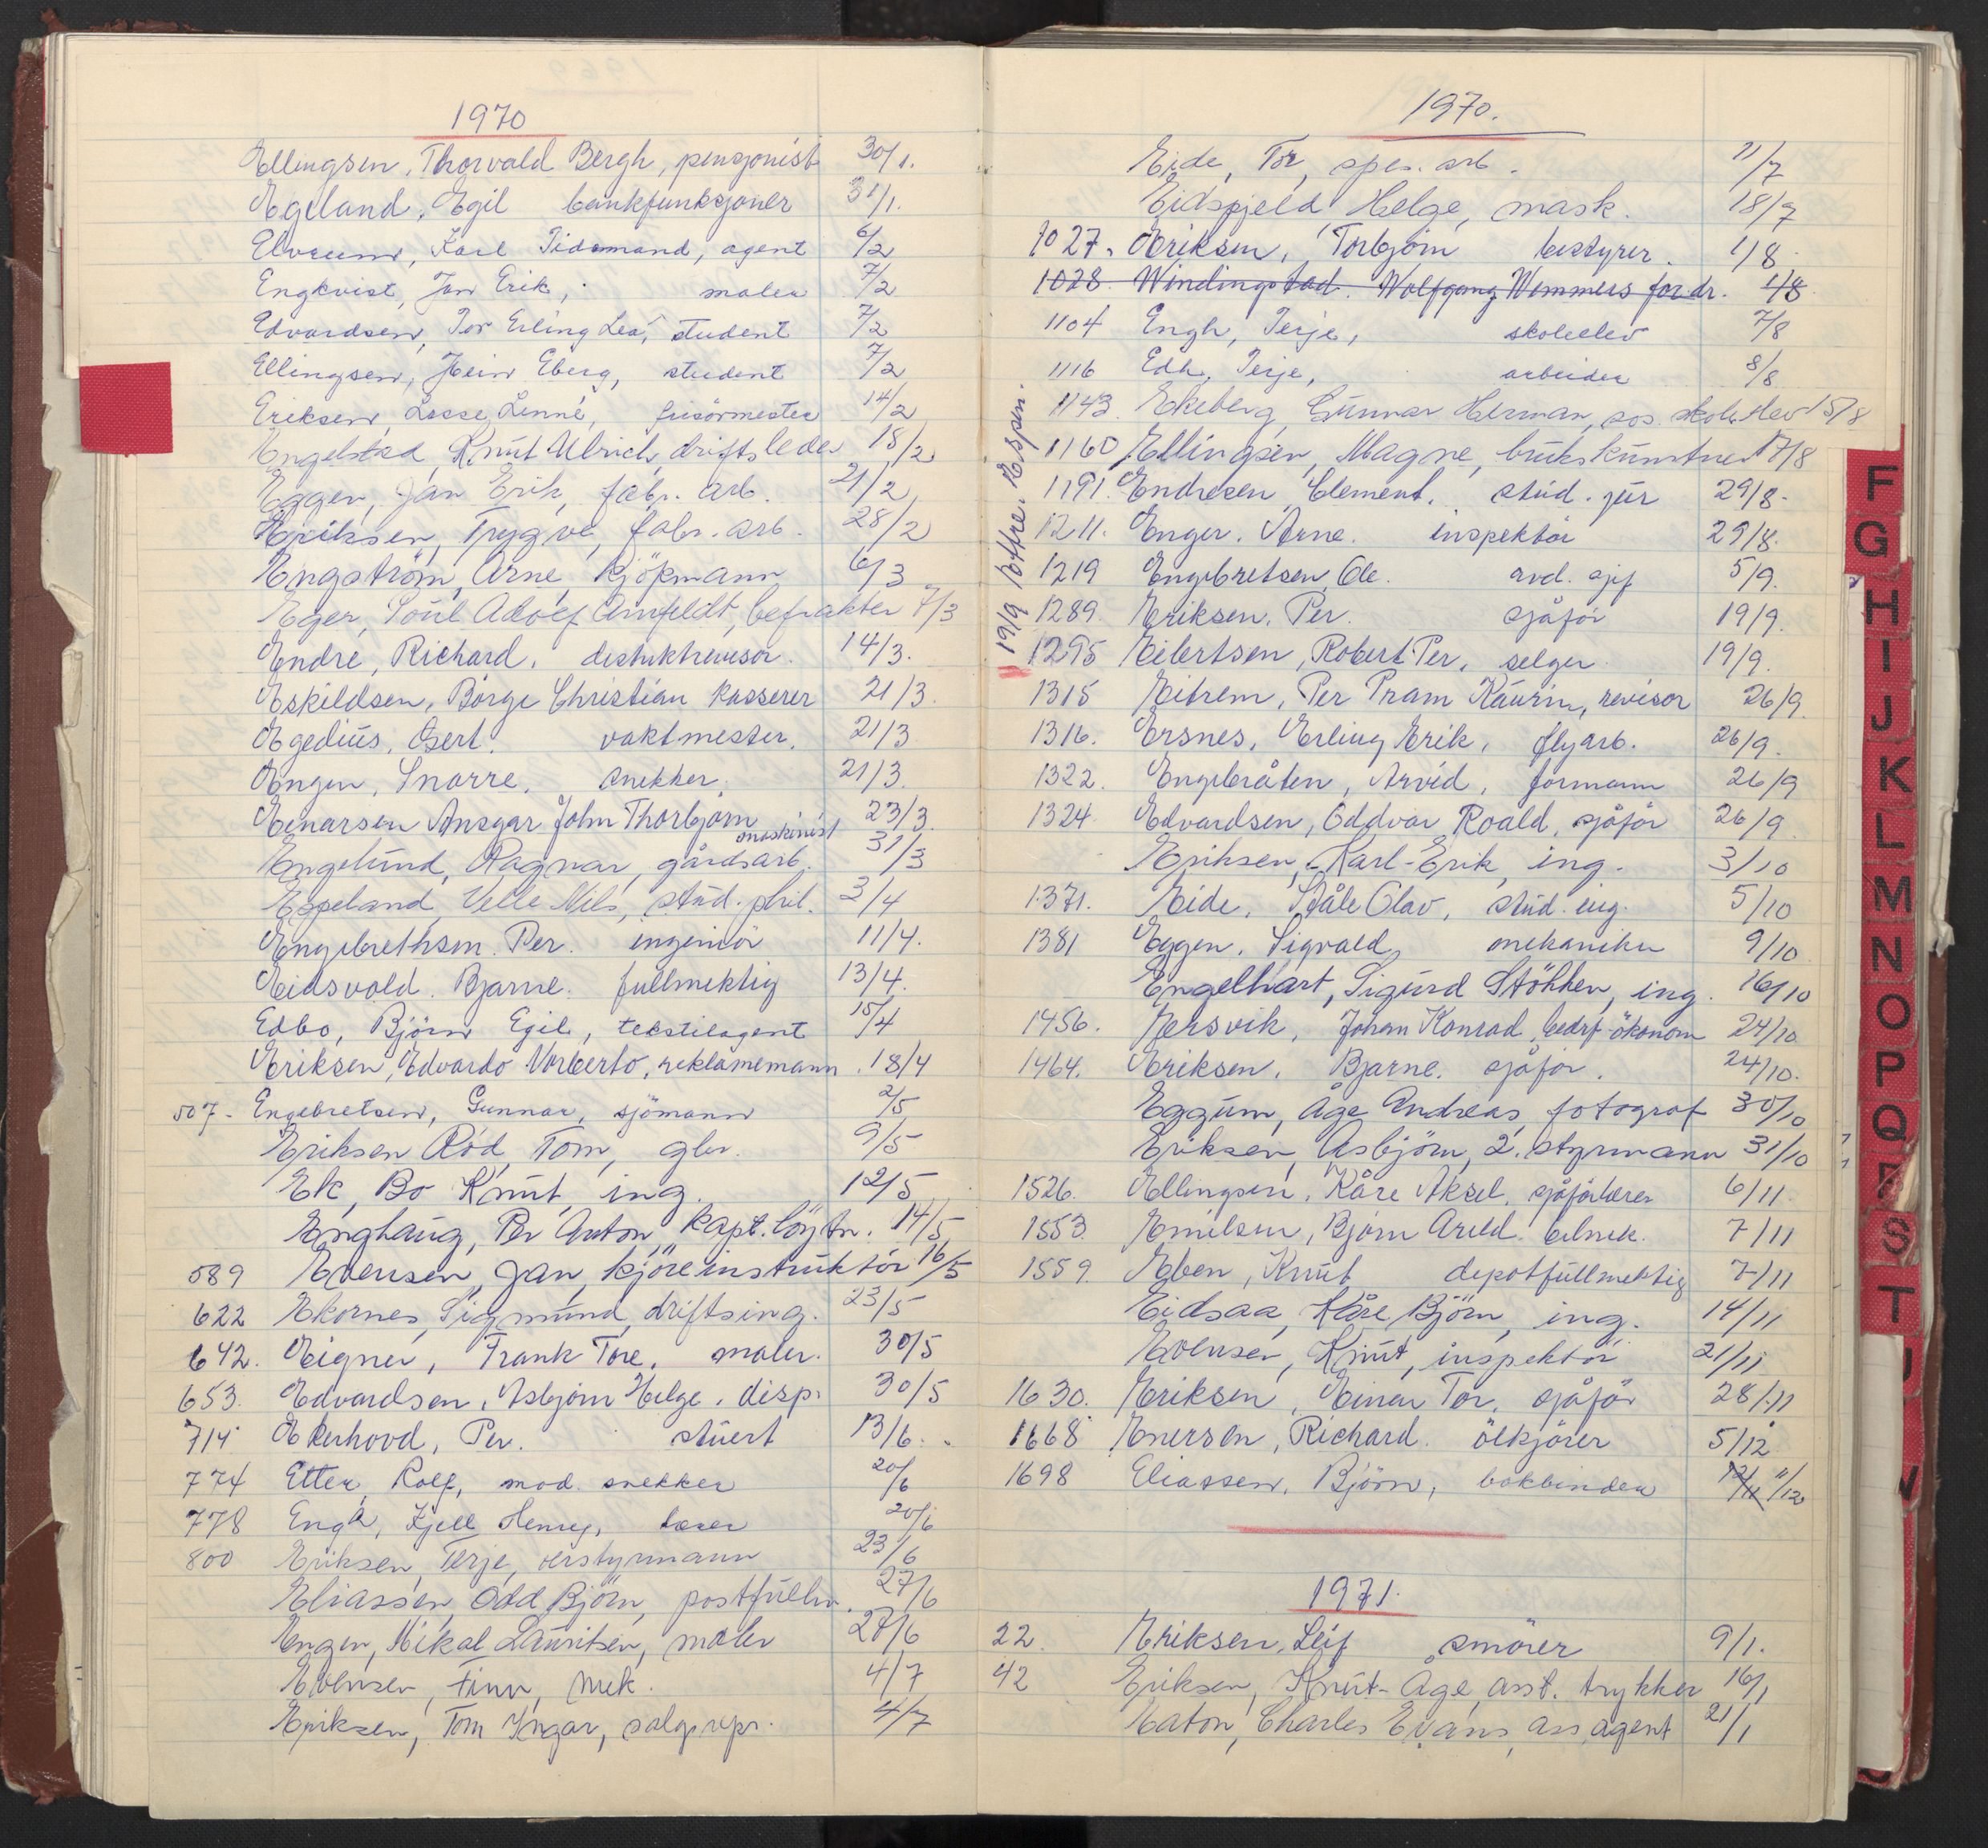 1970
Ellingsen, Thorvald Bergh, pensjonist 30/1.
Egeland, Egil bankfunksjonær 31/1.
Elvrum, Karl Tidemand, agent 6/2
Engkvist, Jan Erik, maler 7/2
Edvardsen, Tor Erling Leo, student 7/2
Ellingsen, Hein Eberg, student 7/2
Eriksen, Lasse Linné, frisörmester 14/2
Engelstad, Knut Ulrich, driftsleder 18/2
Eggen, Jan Erik, fabr. arb. 21/2
Eriksen, Trygve, fabr. arb. 28/2
Engström, Arne, kjökmann 6/3
Eger, Poul Adolf Amfeldt, befrakter 7/3
Endré, Richard. distriktrevisor. 14/3.
Eskildsen, Börge Christian kasserer 21/3.
Egedius, Gert. vaktmester. 21/3
Engen, Snorre. snekker. 21/3.
Einarsen Ansgar John Thorbjörn maskinist 23/3
Engelund, Ragnar, gårdsarb. 31/3
Espeland, Velle Nils, stud. phil. 3/4
Engebrethsen. Per. ingeniör 11/4.
Eidsvold. Bjarne. fullmektig 13/4.
Edbo, Björn Egil, tekstilagent 15/4
Eriksen, Edvardo Norberto, reklamemann. 18/4
507 - Engebretsen, Gunnar, sjömann 2/5
Eriksen Röd, Tom, glm. 9/5
Ek, Bo Knut, ing. 12/5
Enghaug, Per Anton, kapt. löytn. 14/5
589 Evensen, Jan, kjöreinstruktör 16/5
622 Ekornes, Sigmund, driftsing. 23/5
642. Eigner, Frank Tore. maler. 30/5
653. Edvardsen, Asbjörn Helge. disp. 30/5
714 Ekerhovd, Per. stuert 13/6.
774 Etter, Rolf, mod. snekker 20/6
778 Engh, Kjell Henry, lærer 20/6
800 Eriksen, Terje, överstyrmann 23/6
Eliassen, Odd Björn, postfullm. 27/6
Engen, Mikal Lauritsen, maler 27/6
Evensen, Finn, mek. 4/7
Eriksen, Tom Yngar, salgsrepr. 4/7
1970.
Eide, Tor, spes. arb. 11/7
Eidsfjeld Helge, mask. 18/7
1027. Eriksen, Torbjörn bestyrer. 1/8
1028. Windingstad. Wolfgang Wemmers for dr. 1/8
1104 Engh, Terje, skoleelev 7/8
1116 Edh, Terje, arbeider 8/8
1143. Ekeberg, Gunnar Herman, sos. skole elev 15/8
1160 Ellingsen, Magne, brukskunstner 17/8
1191. Endresen, Clement. stud. jur 29/8.
1211. Enger. Arne. inspektör 29/8.
1219 Engebretsen, Ole. avd. sjef 5/9.
1289. Eriksen, Per. sjåför 19/9.
19/9 Eftre Espen.
1295 Eilertsen, Robert Per, selger 19/9.
1315 Eitrem, Per Pram Kaurin, revisor 26/9.
1316. Ersnes, Erling Erik, flyarb. 26/9.
1322. Engebråten, Arvid, formann 26/9
1324 Edvardsen, Oddvar Roald. sjåför 26/9.
Eriksen, Karl-Erik, ing. 3/10
1371. Eide, Ståle Olav, stud. ing. 5/10
1381 Eggen, Sigvald, mekaniker 9/10
Engelhart, Sigurd Stöhken, ing. 16/10
1456. Eersvik, Johan Konrad, bedr. ökonom 24/10.
1464. Eriksen, Bjarne. sjåför. 24/10.
Eggum, Åge Andreas, fotograf 30/10
Eriksen, Asbjörn, 2. styrmann 31/10
1526. Ellingsen, Kåre Aksel, sjåförlærer 6/11.
1553. Emilsen, Björn Arild. bilmek. 7/11
1559 Eben, Knut depotfullmektig 7/11
Eidsaa, Kåre Björn, ing. 14/11
Evensen, Knut, inspektör 21/11
1630. Eriksen, Einar Tor, sjåför 28/11
1668 Enersen, Richard. ölkjörer 5/12
1698 Eliassen, Björn, bokbinder 12/11 11/12
1971.
22. Eriksen, Leif smörer 9/1.
42 Eriksen, Knut-Åge, asst. trykker 16/1
Eaton, Charles Evans, ass. agent 21/1
F
G
H
I
J
K
L
M
N
O
P
Q
R
S
T